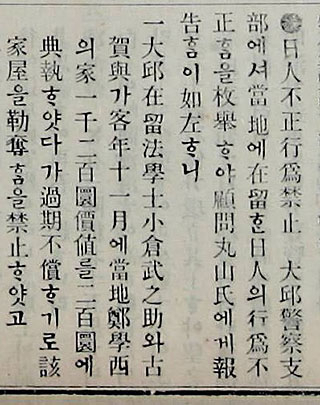 日人不正行爲禁止 大邱警察支
部에셔當地에在留ᄒᆞᆫ日人의行爲不
正ᄒᆞᆷ을枚擧ᄒᆞ야顧問丸山氏에게報
告ᄒᆞᆷ이如左ᄒᆞ니
一大邱在留法學士小倉武之助와古
賀與가客年十一月에當地鄭學西
의家一千二百圜價値를二百圜에
典執ᄒᆞ얏다가過期不償ᄒᆞ기로該
家屋을勒奪ᄒᆞᆷ을禁止ᄒᆞ얏고